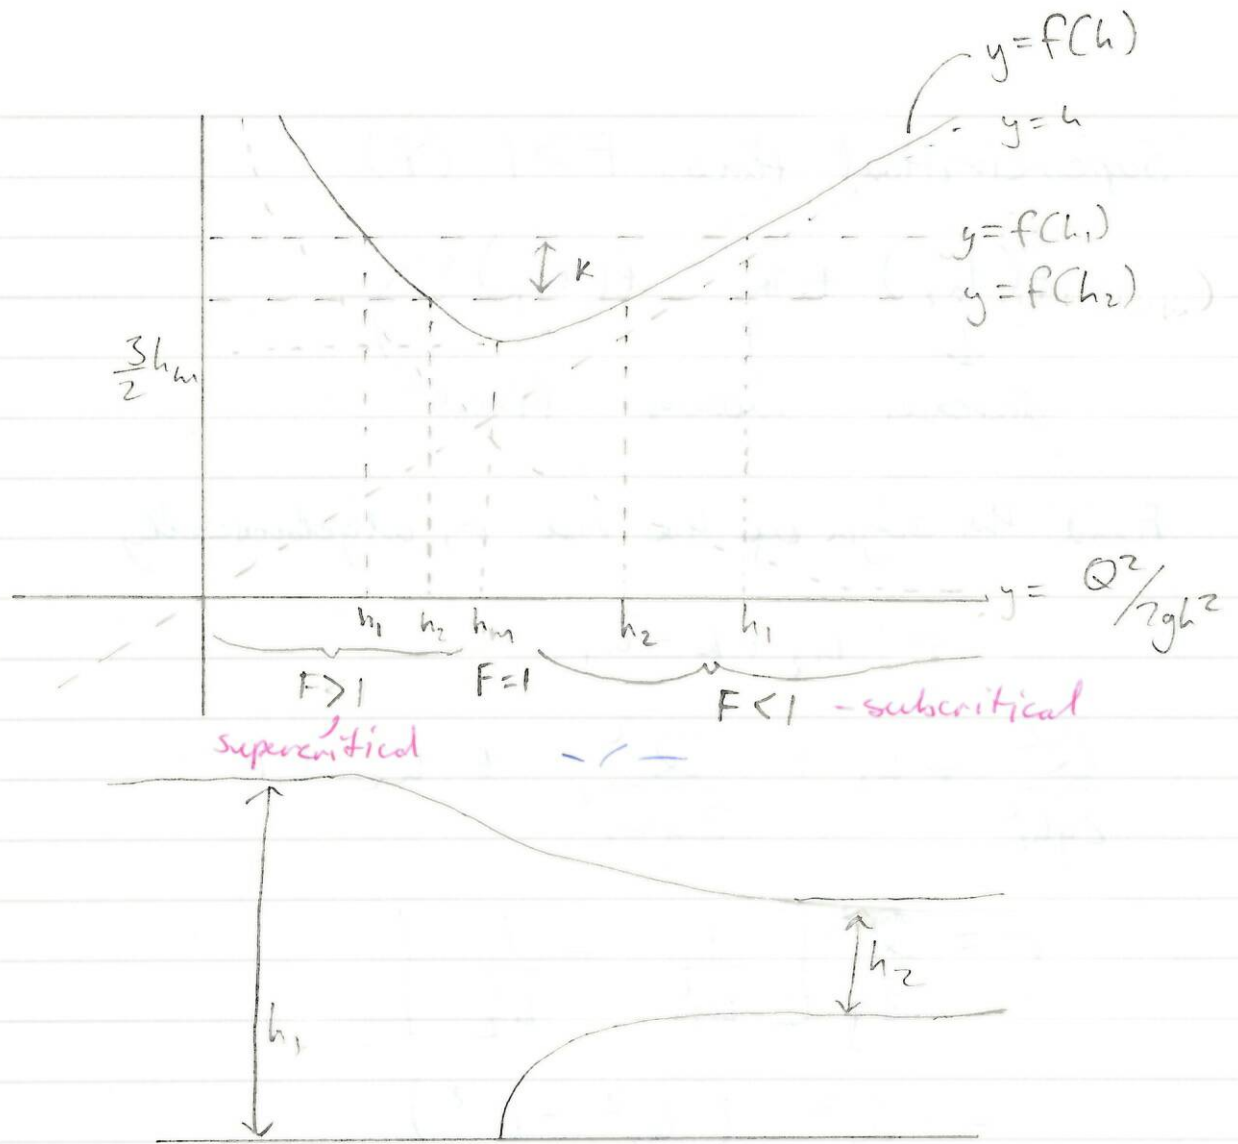 y=f(h)
y=h
y=f(h₁)
K
y=f(h₂)
3/2 hₘ
y= Q²/2gh²
h₁ h₂ hₘ h₂ h₁
F>1 F=1 F<1 -subcritical
supercritical
h₂
h₁